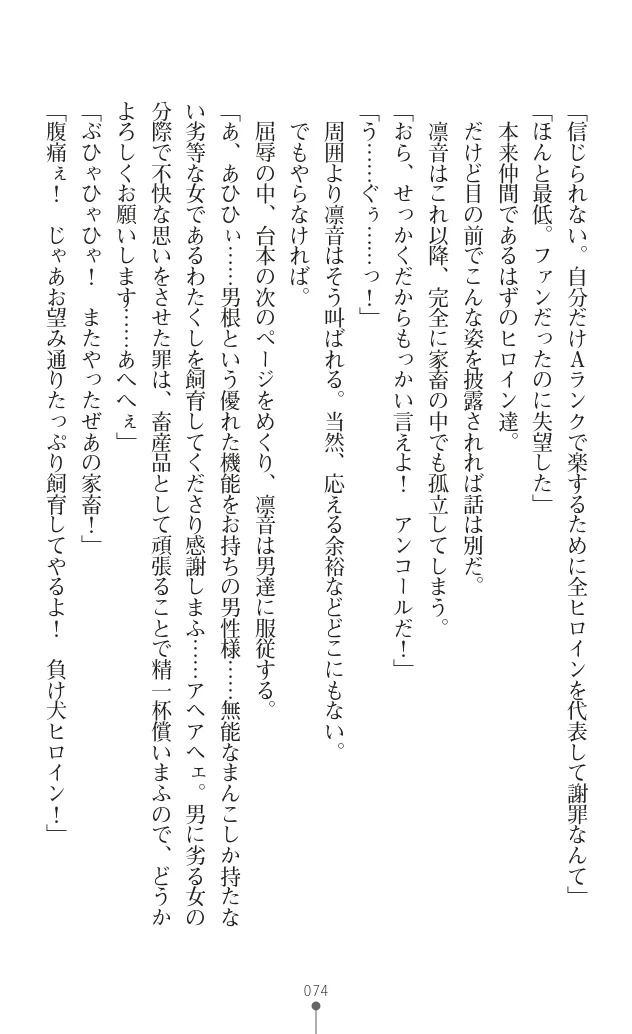 「信じられない。自分だけAランクで楽するために全ヒロインを代表して謝罪なんて」
「ほんと最低。ファンだったのに失望した」
本来仲間であるはずのヒロイン達。
だけど目の前でこんな姿を披露されれば話は別だ。
凛音はこれ以降、完全に家畜の中でも孤立してしまう。
「おら、せっかくだからもっかい言えよ！　アンコールだ！」
「う……ぐぅ……っ！」
周囲より凛音はそう叫ばれる。当然、応える余裕などどこにもない。
でもやらなければ。
屈辱の中、台本の次のページをめくり、凛音は男達に服従する。
「あ、あひひぃ……男根という優れた機能をお持ちの男性様……無能なまんこしか持たな
い劣等な女であるわたくしを飼育してくださり感謝しまふ……アヘアヘェ。男に劣る女の
分際で不快な思いをさせた罪は、畜産品として頑張ることで精一杯償いまふので、どうか
よろしくお願いします……あへへぇ」
「ぶひゃひゃひゃ！　またやったぜあの家畜！」
「腹痛ぇ！　じゃあお望み通りたっぷり飼育してやるよ！　負け犬ヒロイン！」
074